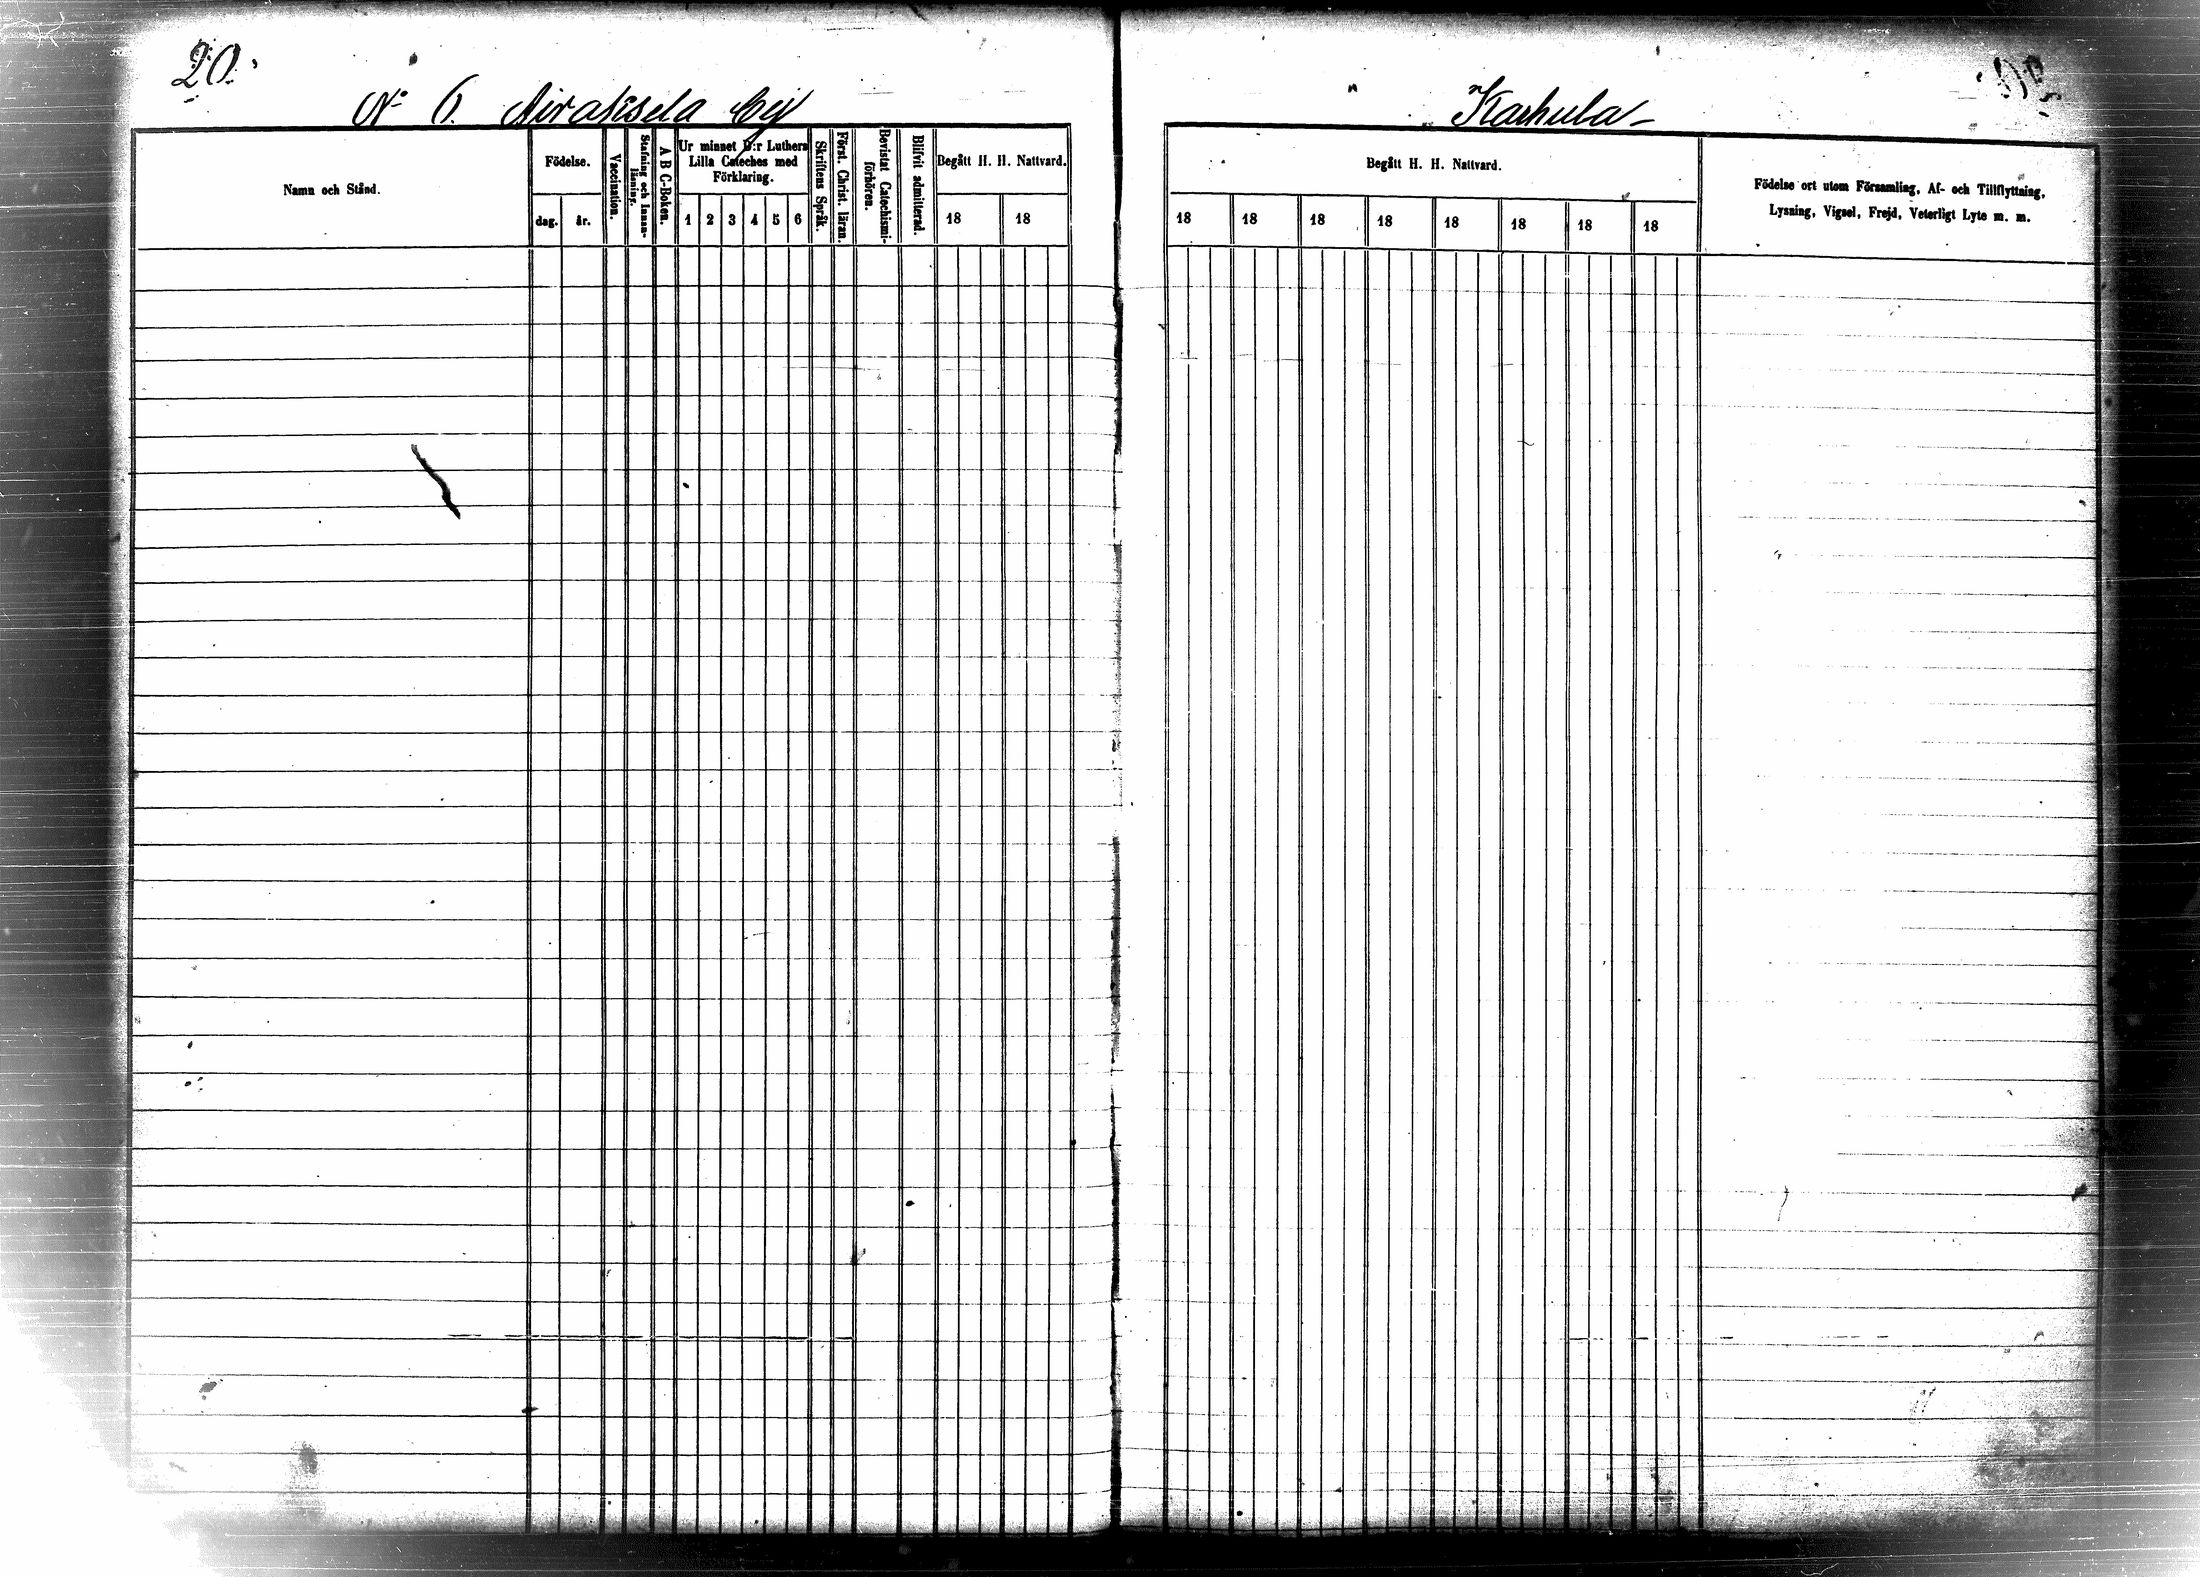 20.
No 6. Airaksela by
Karhula
Namn och Stånd.
Födelse.
dag. år.
Vaccination.
Stafning och Innan-
läsning.
A B C-Boken.
Ur minnet D:r Luthers
Lilla Cateches med
Förklaring.
1 2 3 4 5 6
Skriftens Språk.
Först. Christ. läran.
Bevistat Catechismi-
förhören.
Blifvit admitterad.
Begått H. H. Nattvard.
18 18
Begått H. H. Nattvard.
18 18 18 18 18 18 18 18
Födelse ort utom Församling, Af- och Tillflyttning,
Lysning, Vigsel, Frejd, Veterligt Lyte m. m.